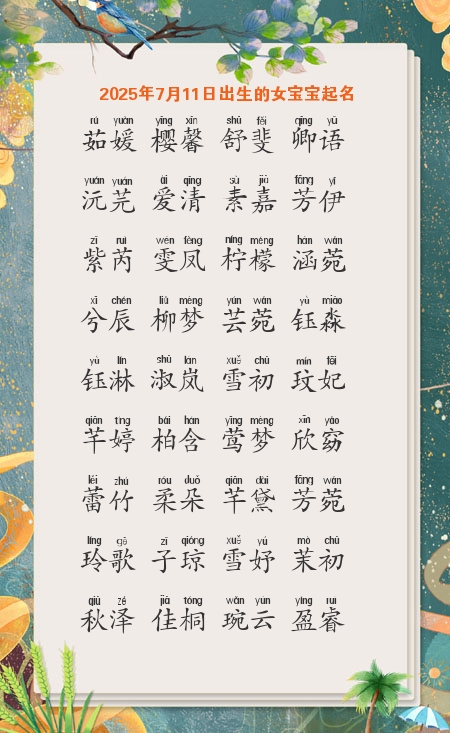 2025年7月11日出生的女宝宝起名
rú yuàn yīng xīn shū fěi qīng yǔ
茹媛 樱馨 舒斐 卿语
yuán yuán ài qīng sù jiā fāng yī
沅芫 爱清 素嘉 芳伊
zǐ ruì wén fèng níng méng hán wǎn
紫芮 雯凤 柠檬 涵菀
xī chén liǔ mèng yún wǎn yù miǎo
兮辰 柳梦 芸菀 钰淼
yù lín shū lán xuě chū mín fēi
钰淋 淑岚 雪初 玟妃
qiān tíng bái hán yīng mèng xīn yǎo
芊婷 柏含 莺梦 欣窈
lěi zhú róu duǒ qiān dài fāng wǎn
蕾竹 柔朵 芊黛 芳菀
líng gē zǐ qióng xuě yú mò chū
玲歌 子琼 雪妤 茉初
qiū zé jiā tóng wǎn yún yíng ruì
秋泽 佳桐 琬云 盈睿